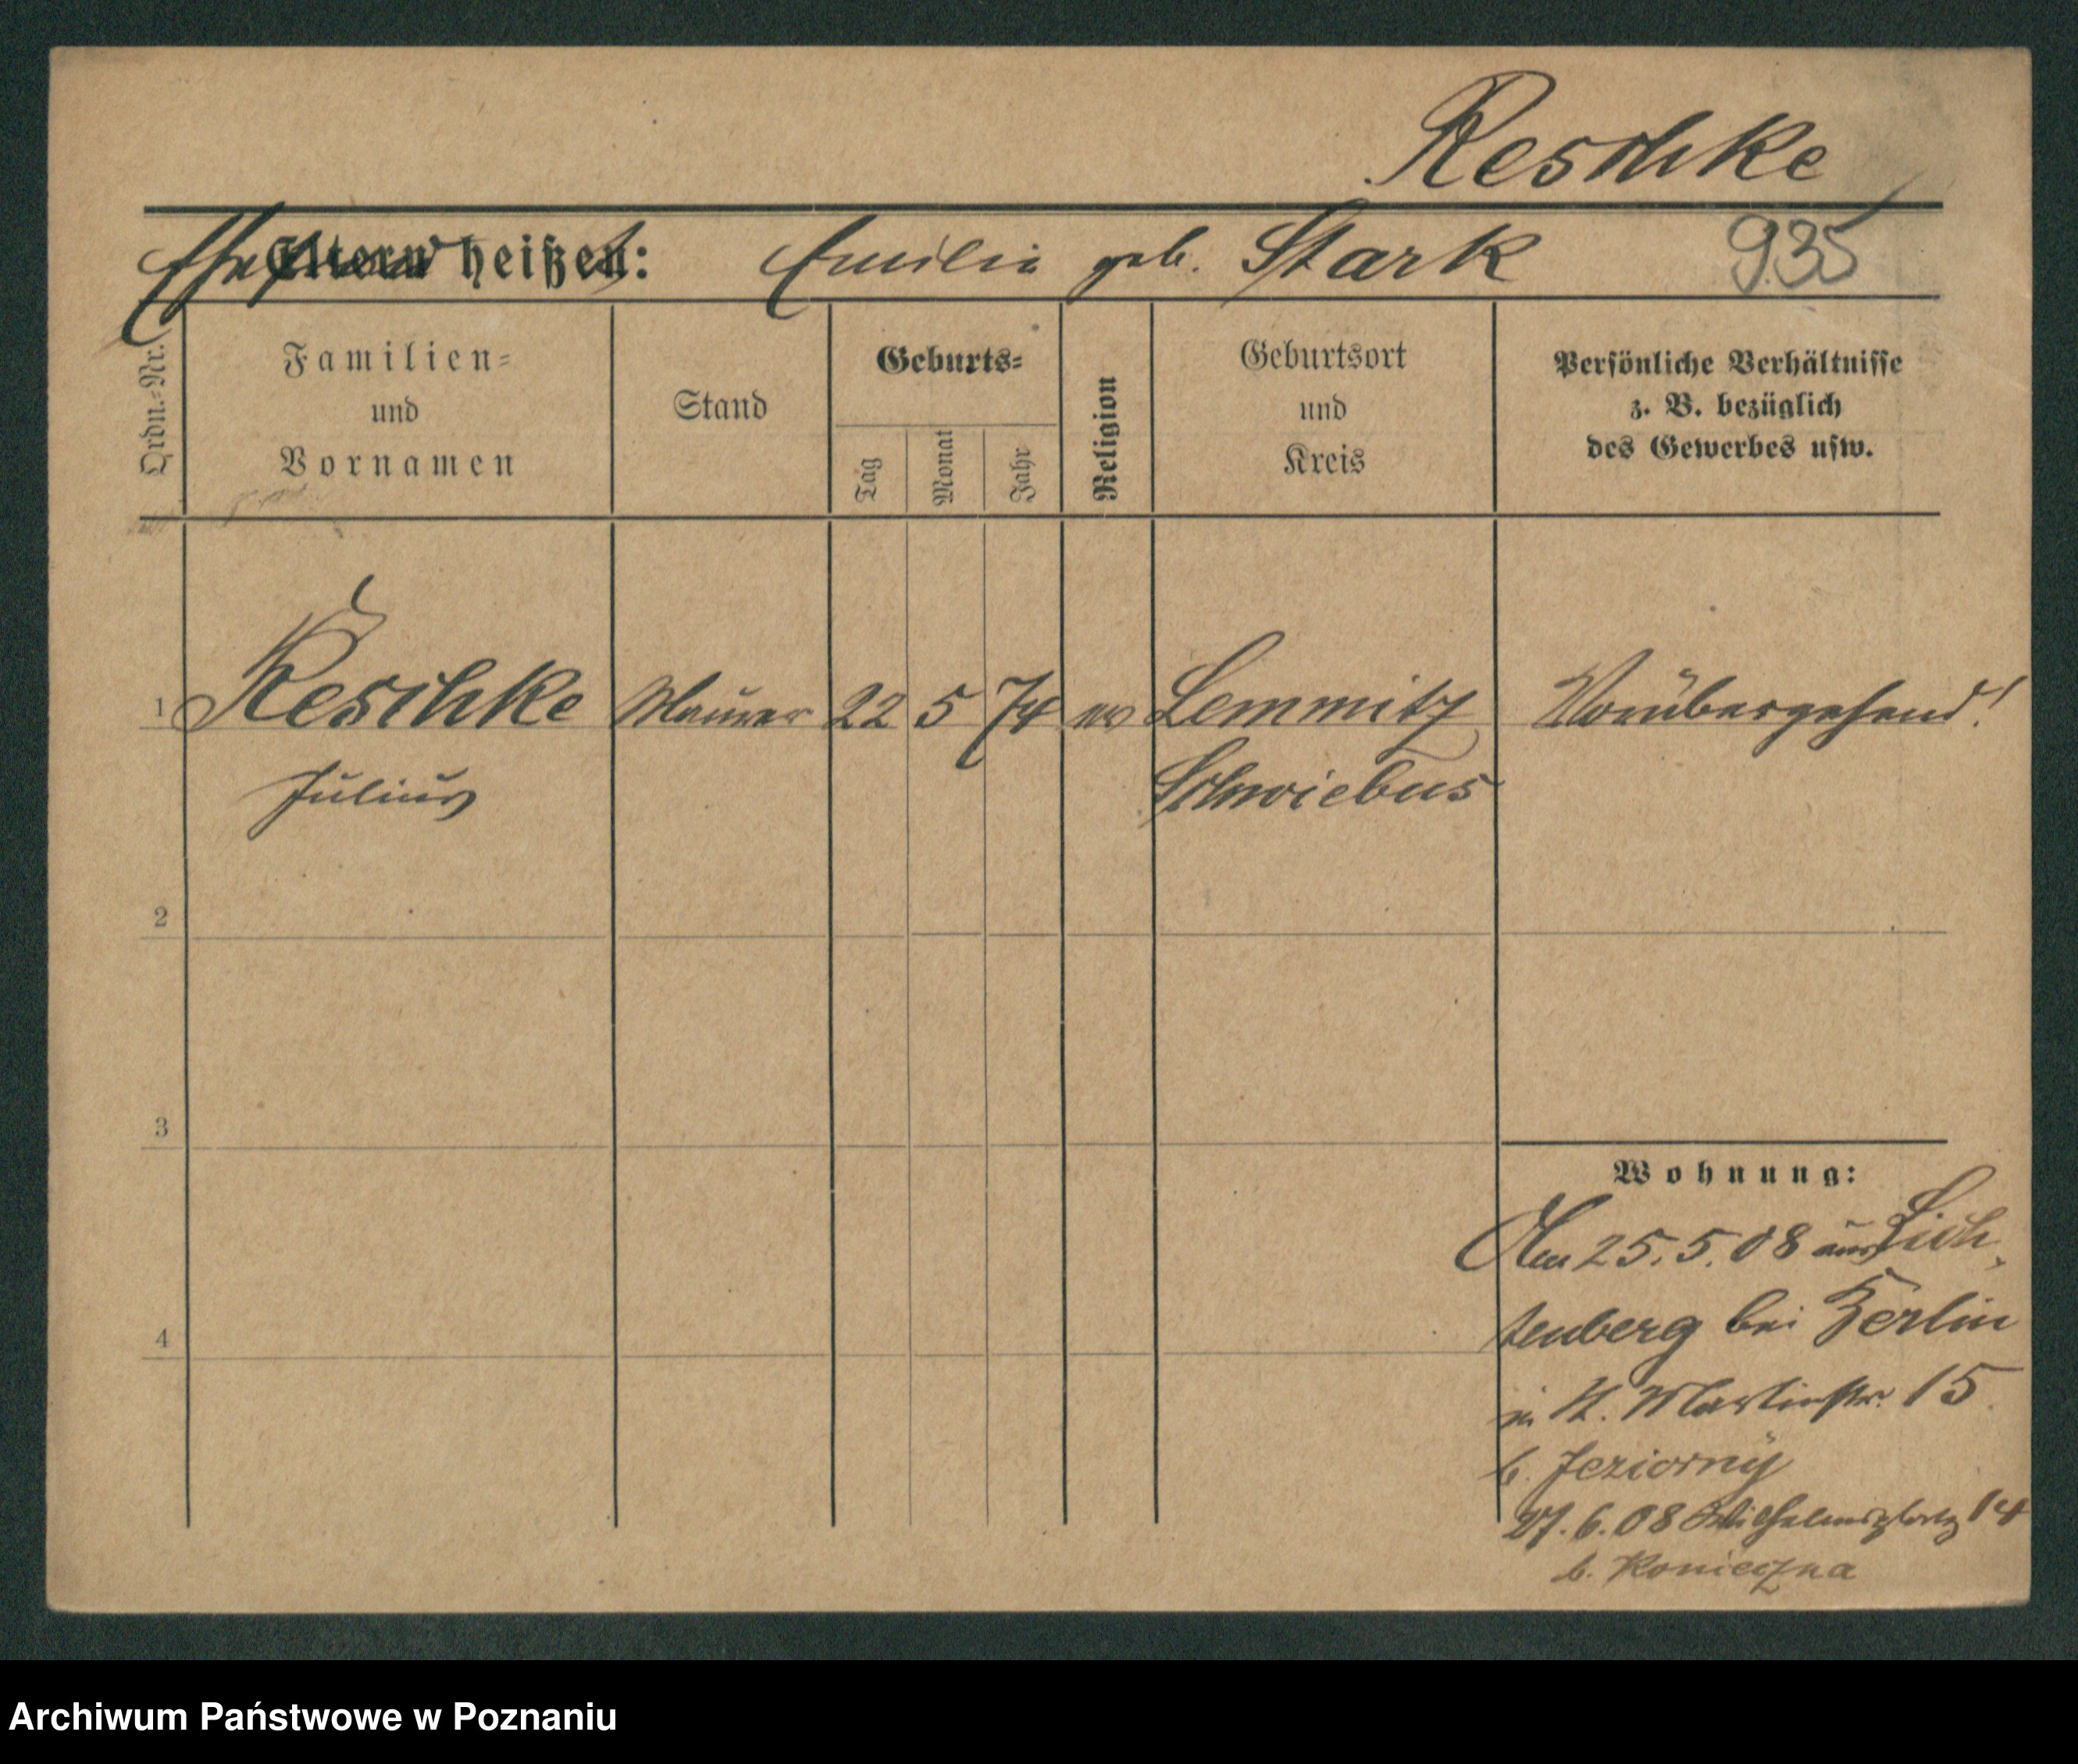 Reschke
Ehefrau heißt: Emilie geb. Stark 935
Ordn.-Nr.
Familien- und Vornamen
Stand
Geburts-
Tag Monat Jahr
Religion
Geburtsort und Kreis
Persönliche Verhältnisse
z. B. bezüglich
des Gewerbes usw.
1 Reschke Maurer 22 5 74 ev Lemmitz Vorübergehend!
Julius Schwiebus
2
3
Wohnung:
Am 25.5.08 aus Lich-
tenberg bei Berlin
in St. Martinstr. 15
b. Jeziorny
4
27.6.08 Wilhelmsplatz 14
b. Konieczna
Archiwum Państwowe w Poznaniu